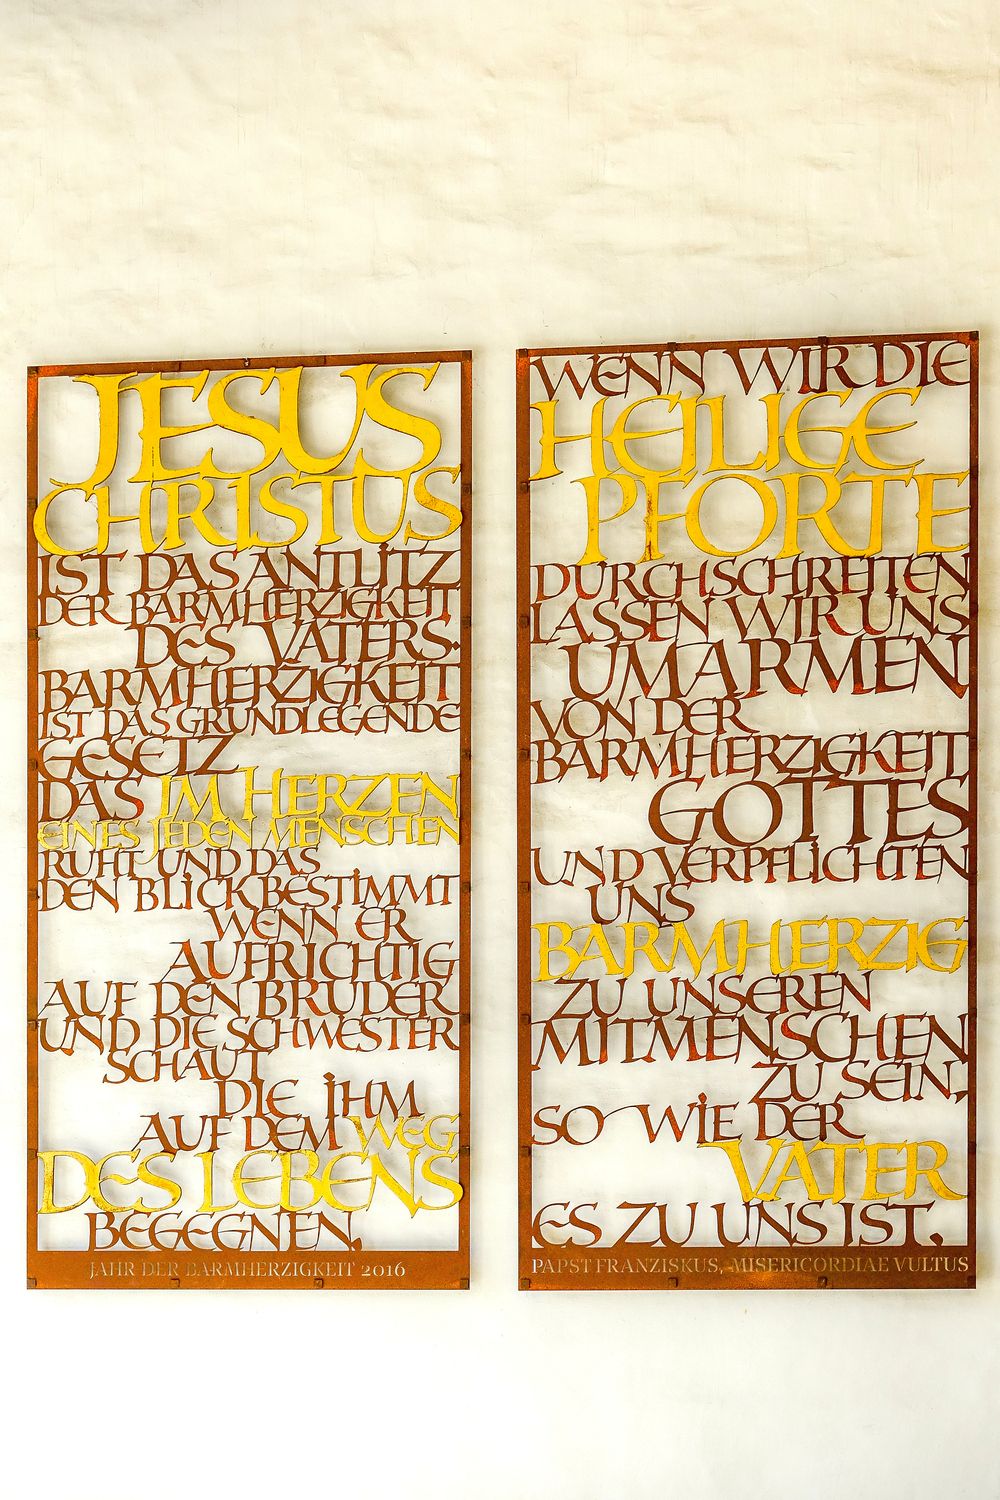 JESUS
CHRISTUS
IST DAS ANTLITZ
DER BARMHERZIGKEIT
DES VATERS.
BARMHERZIGKEIT
IST DAS GRUNDLEGENDE
GESETZ
DAS IM HERZEN
EINES JEDEN MENSCHEN
RUHT UND DAS
DEN BLICK BESTIMMT
WENN ER
AUFRICHTIG
AUF DEN BRUDER
UND DIE SCHWESTER
SCHAUT
DIE IHM
AUF DEM WEG
DES LEBENS
BEGEGNEN.
JAHR DER BARMHERZIGKEIT 2016
WENN WIR DIE
HEILIGE
PFORTE
DURCHSCHREITEN
LASSEN WIR UNS
UMARMEN
VON DER
BARMHERZIGKEIT
GOTTES
UND VERPFLICHTEN
UNS
BARMHERZIG
ZU UNSEREN
MITMENSCHEN
ZU SEIN,
SO WIE DER
VATER
ES ZU UNS IST.
PAPST FRANZISKUS, MISERICORDIAE VULTUS